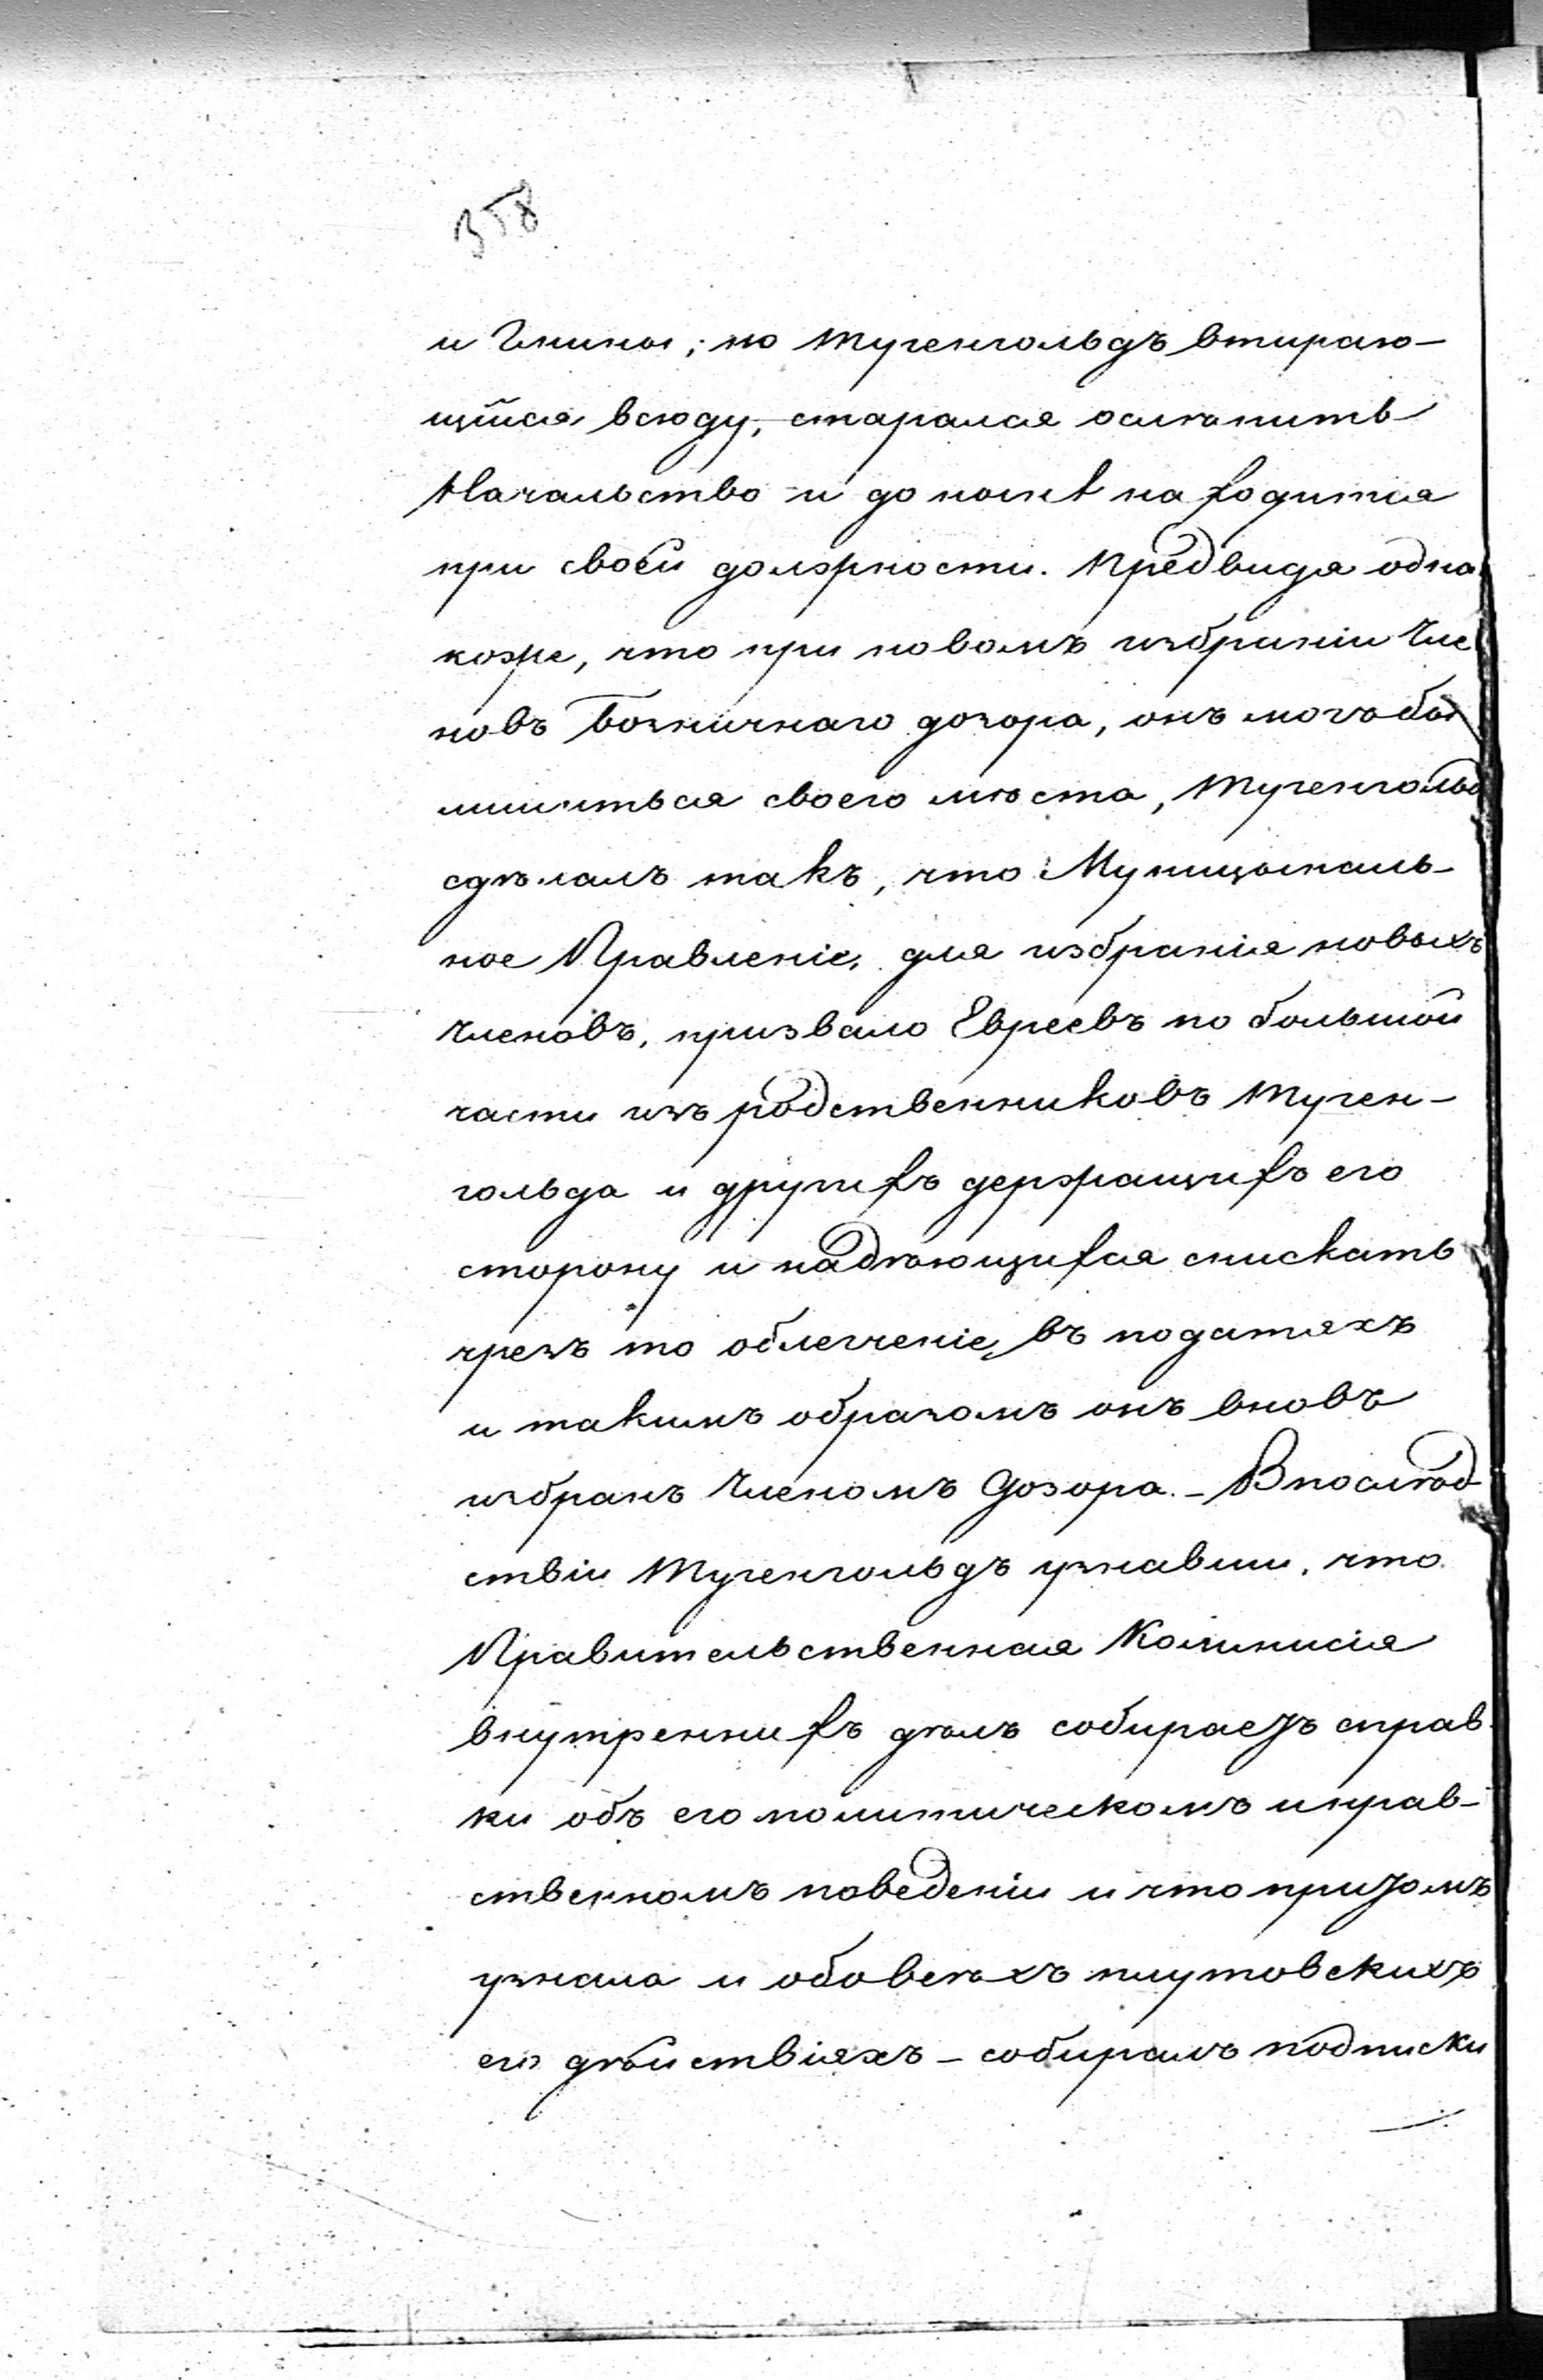 358
и Гмины; но Тугенгольдъ втираю-
щійся всюду, старался ослѣпить
Начальство и до нынѣ находится
при своей должности. Предвидя одна
коже, что при новомъ избраніи Чле
новъ Божничнаго дозора, онъ могъ бы
лишиться своего мѣста, Тугенгольд
сдѣлалъ такъ, что Муницыпаль-
ное Правленіе, для избранія новыхъ
Членовъ, призвало Евреевъ по большой
части изъ родственниковъ Туген-
гольда и другихъ держащихъ его
сторону и надѣющихся снискать
чрезъ то облегченіе въ податяхъ
и такимъ образомъ онъ вновь
избранъ Членомъ Дозора. - Впослѣд
ствіи Тугенгольдъ узнавши, что
Правительственная Коммисія
внутреннихъ дѣлъ собираетъ справ
ки объ его политическомъ и нрав-
ственномъ поведеніи и что притомъ
узнала и обо всѣхъ плутовскихъ
его дѣйствіяхъ - собиралъ подписки